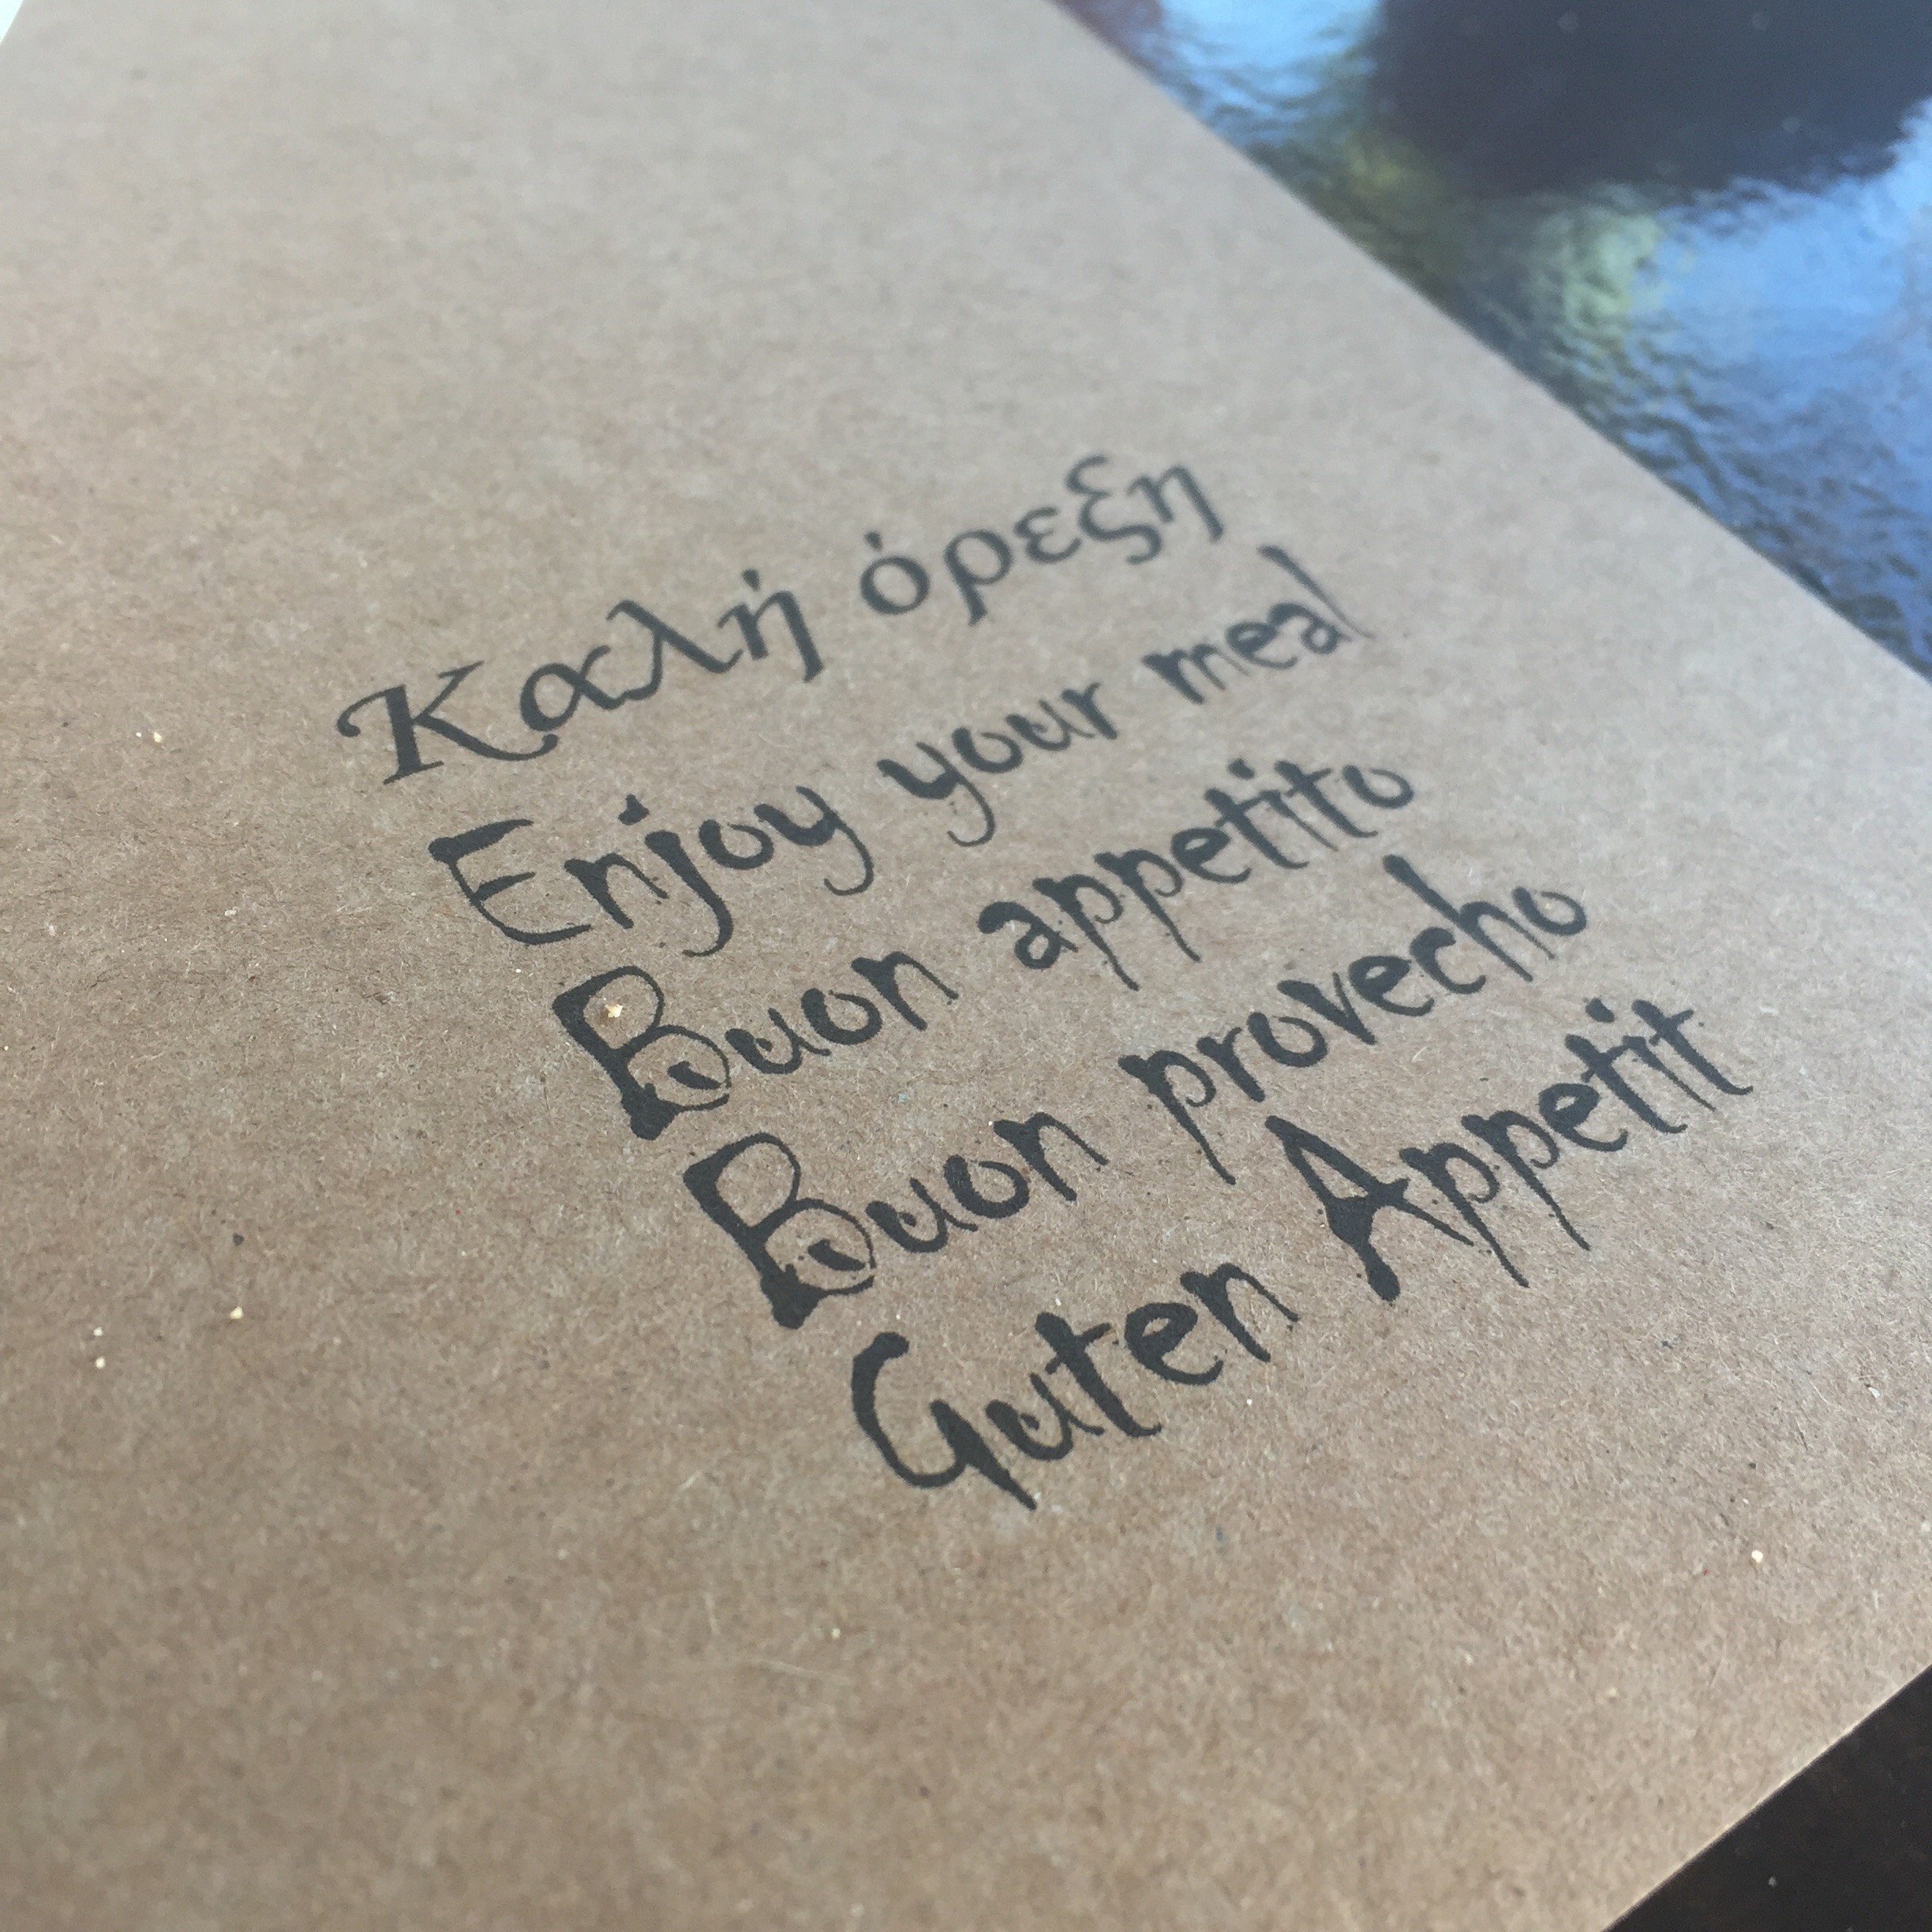 Καλή όρεξη
Enjoy your meal
Buon appetito
Buon provecho
Guten Appetit